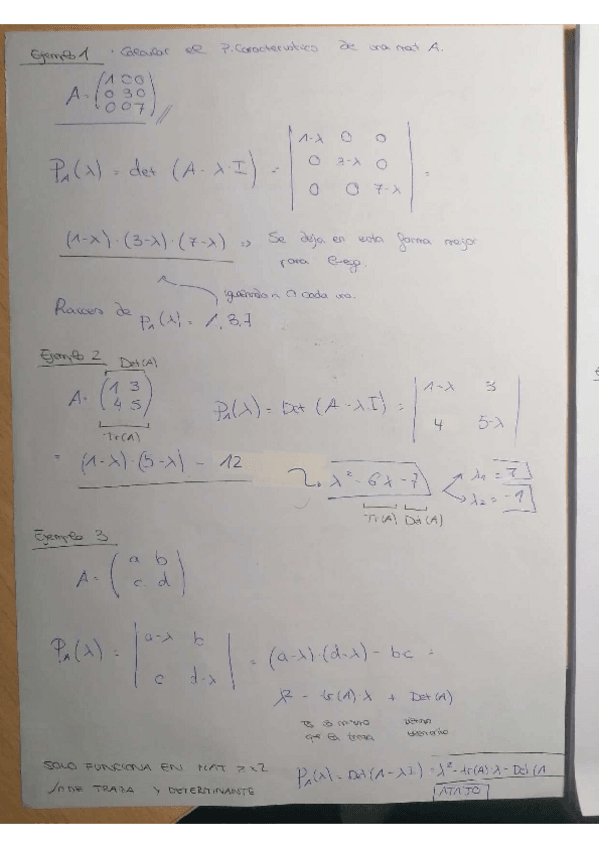 Ejemplo 1 · Calcular el P. Característico de una mat A.
A = (1 0 0
0 3 0
0 0 7)
P_A(λ) = det (A - λ·I) = | 1-λ 0 0
0 3-λ 0
0 0 7-λ | =
(1-λ)·(3-λ)·(7-λ) => Se deja en esta forma mejor
para
igualando a 0 cada una.
Raíces de P_A(λ) = 1, 3, 7
Ejemplo 2 Det(A)
A = (1 3
4 5)
Tr(A)
P_A(λ) = Det (A - λI) = | 1-λ 3
4 5-λ |
= (1-λ)·(5-λ) - 12
λ² - 6λ - 7
λ₁ = 7
λ₂ = -1
Tr(A) Det(A)
Ejemplo 3
A = (a b
c d)
P_A(λ) = | a-λ b
c d-λ | = (a-λ)·(d-λ) - bc =
λ² - tr(A)·λ + Det(A)
es lo mismo
que la traza
SOLO FUNCIONA EN MAT 2x2
TRAZA Y DETERMINANTE
P_A(λ) = Det(A - λI) = λ² - tr(A)·λ - Det(A
ATAJO